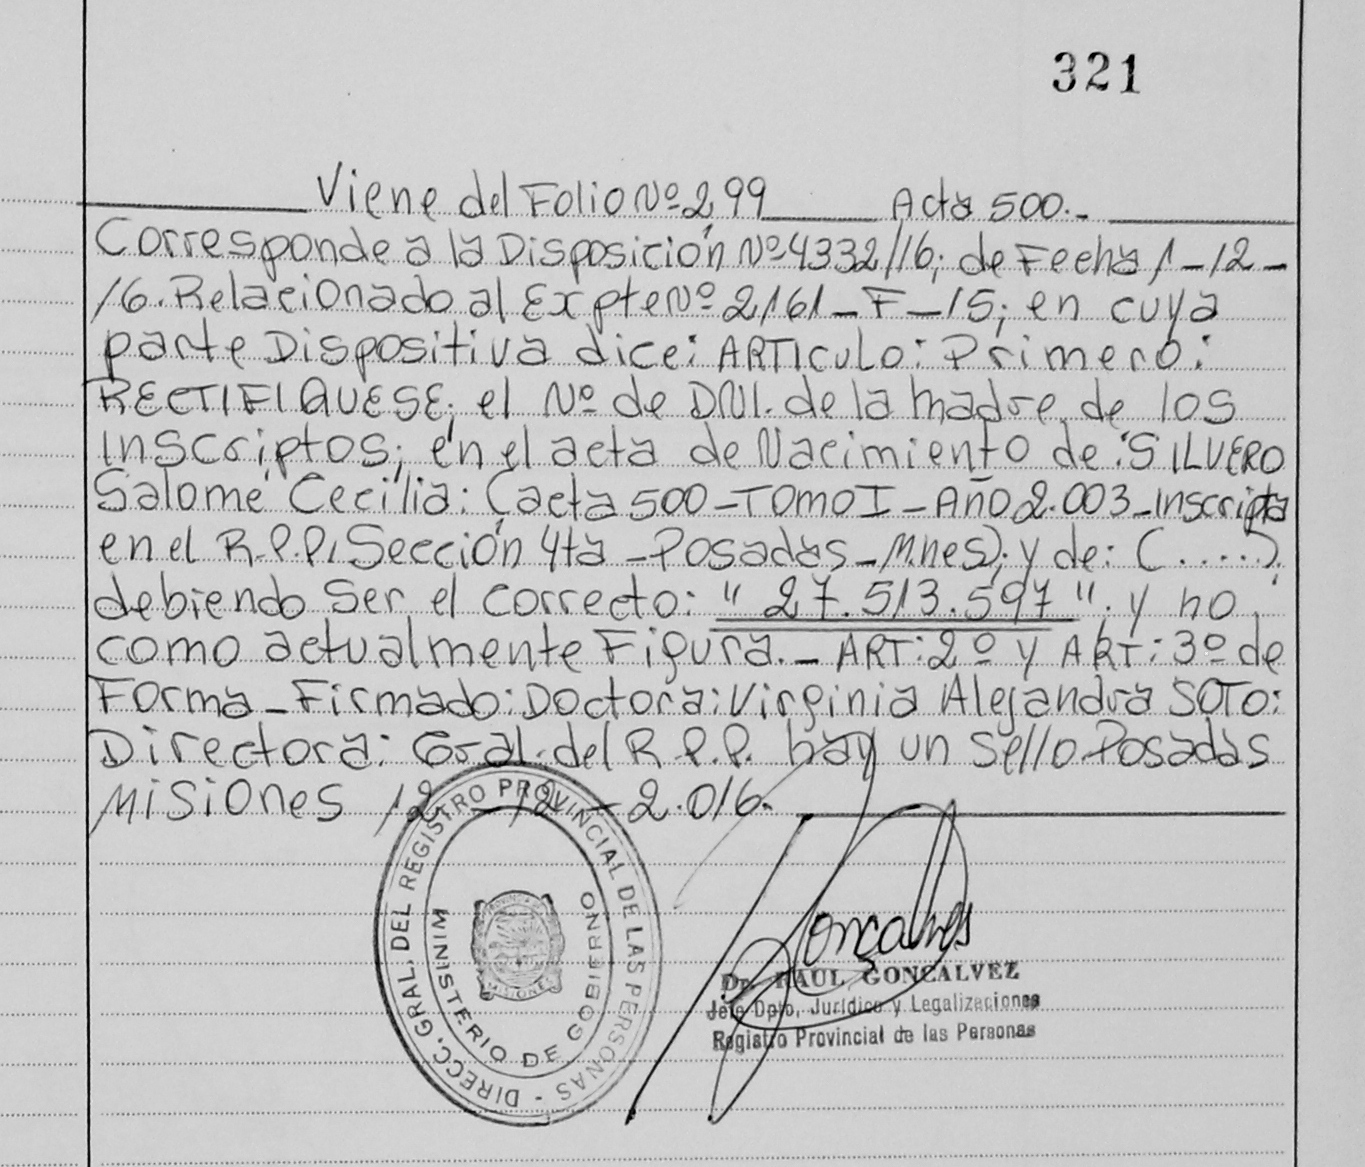 321
Viene del Folio Nº 299 Acta 500.-
Corresponde a la Disposición Nº 4332/16; de Fecha 1-12-
16. Relacionado al Expte Nº 2161-F-15; en cuya
parte Dispositiva dice: ARTICULO: Primero:
RECTIFIQUESE; el Nº de DNI. de la madre de los
Inscriptos; en el acta de Nacimiento de: SILVERO
Salomé Cecilia: (acta 500-TOMO I-Año 2.003-Inscripta
en el R.P.P. Sección 4ta-Posadas-Mnes); y de: (.....)
debiendo ser el correcto: "27.513.597". y no
como actualmente Figura.- ART: 2º y ART: 3º de
Forma-Firmado: Doctora: Virginia Alejandra SOTO:
Directora: Gral. del R.P.P. hay un Sello. Posadas
Misiones 12-12-2.016.
DIRECC. GRAL. DEL REGISTRO PROVINCIAL DE LAS PERSONAS -
MINISTERIO DE GOBIERNO
MISIONES
Goncalves
Dr. RAUL GONCALVEZ
Jefe Dpto, Jurídico y Legalizaciones
Registro Provincial de las Personas